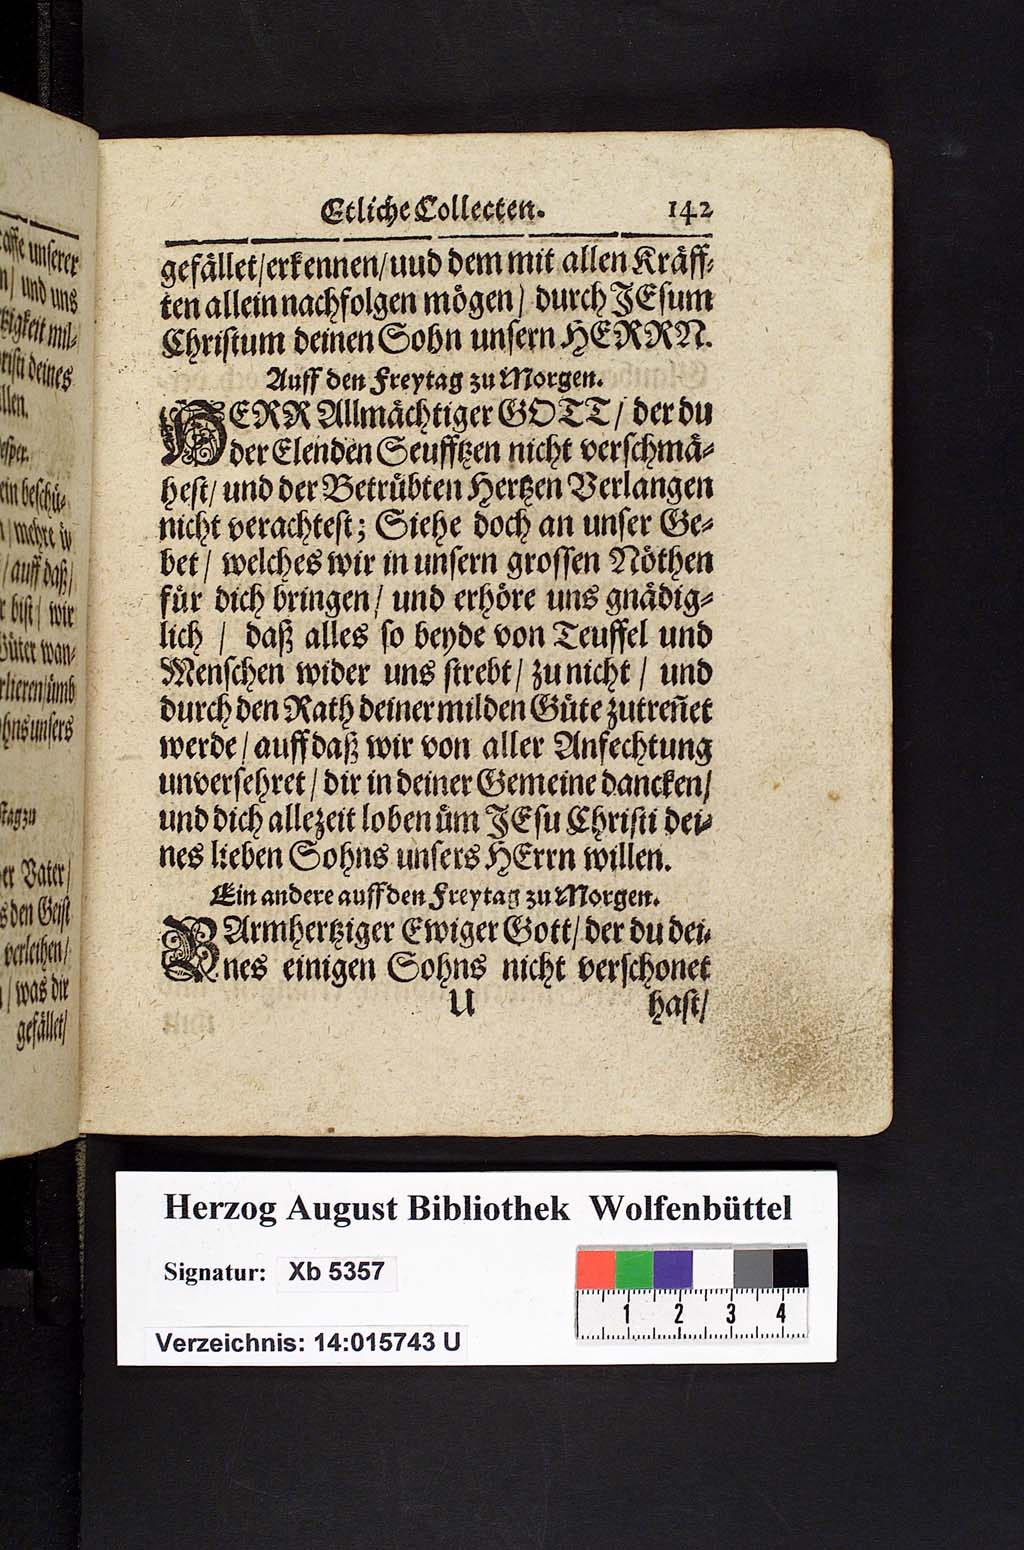 Etliche Collecten. 142
gefället/erkennen/uud dem mit allen Kräff-
ten allein nachfolgen mögen/ durch JEsum
Christum deinen Sohn unsern HERRN.
Auff den Freytag zu Morgen.
HERR Allmächtiger GOTT/ der du
der Elenden Seufftzen nicht verschmä-
hest/ und der Betrübten Hertzen Verlangen
nicht verachtest; Siehe doch an unser Ge-
bet/ welches wir in unsern grossen Nöthen
für dich bringen/ und erhöre uns gnädig-
lich / daß alles so beyde von Teuffel und
Menschen wider uns strebt/ zu nicht/ und
durch den Rath deiner milden Güte zutreñet
werde/ auff daß wir von aller Anfechtung
unversehret/ dir in deiner Gemeine dancken/
und dich allezeit loben üm JEsu Christi dei-
nes lieben Sohns unsers HErrn willen.
Ein andere auff den Freytag zu Morgen.
BArmhertziger Ewiger Gott/ der du dei-
nes einigen Sohns nicht verschonet
U hast/
unserer
und uns
mil-
deines
ein beschü-
auff daß/
bist/ wir
wan-
ümb
unsers
Vater/
den Geist
verleihen/
was dir
gefället/
Herzog August Bibliothek Wolfenbüttel
Signatur: Xb 5357
1 2 3 4
Verzeichnis: 14:015743 U